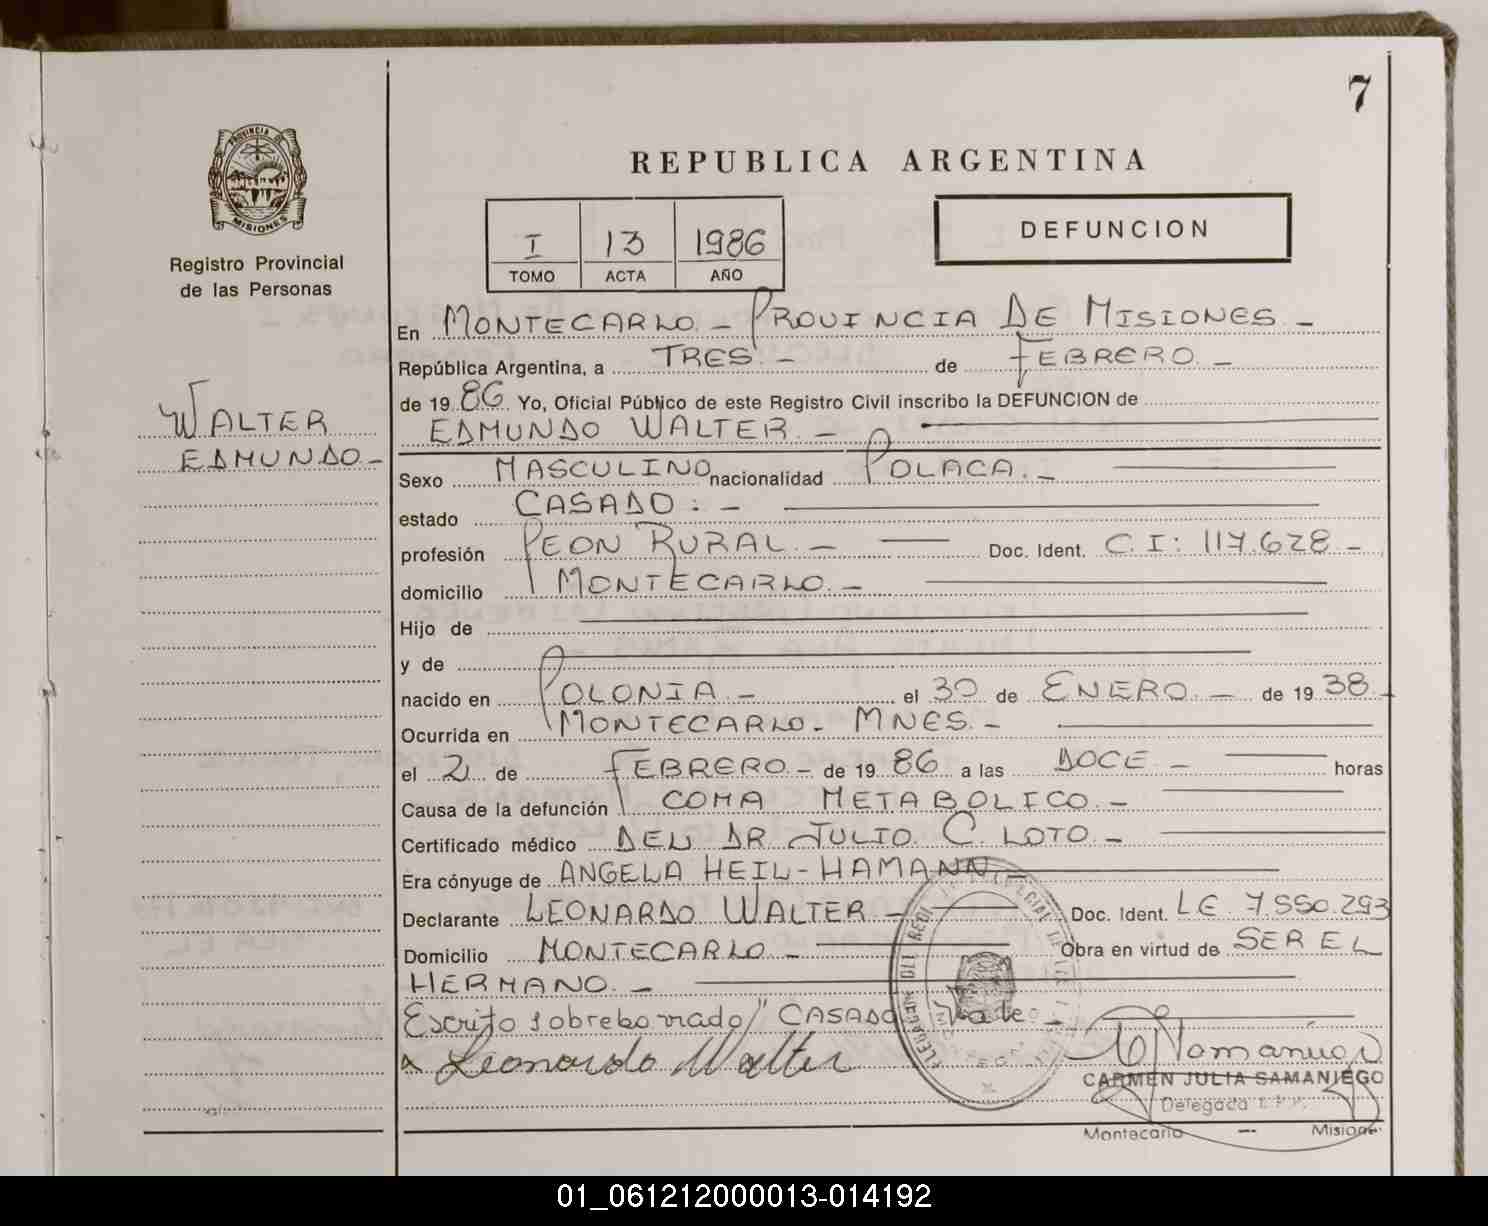 7
PROVINCIA DE
MISIONES
Registro Provincial
de las Personas
REPUBLICA ARGENTINA
I 13 1986
TOMO ACTA AÑO
DEFUNCION
WALTER
EDMUNDO -
En MONTECARLO - PROVINCIA DE MISIONES -
República Argentina, a TRES - de FEBRERO -
de 1986 Yo, Oficial Público de este Registro Civil inscribo la DEFUNCION de
EDMUNDO WALTER. -
Sexo MASCULINO nacionalidad POLACA. -
estado CASADO: -
profesión PEON RURAL. - Doc. Ident. C.I: 117.628 -
domicilio MONTECARLO. -
Hijo de
y de
nacido en POLONIA. - el 30 de ENERO. - de 1938 -
Ocurrida en MONTECARLO. MNES. -
el 2 de FEBRERO. - de 1986 a las DOCE - horas
Causa de la defunción COMA METABOLICO. -
Certificado médico DEL DR JULIO C. LOTO. -
Era cónyuge de ANGELA HEIL-HAMANN -
Declarante LEONARDO WALTER - Doc. Ident. LE 7.550.293
Domicilio MONTECARLO - Obra en virtud de SER EL
HERMANO. -
Escrito sobreborrado/ "CASADO" Vale -
Leonardo Walter
CARMEN JULIA SAMANIEGO
Delegada
Montecarlo — Misiones
01_061212000013-014192